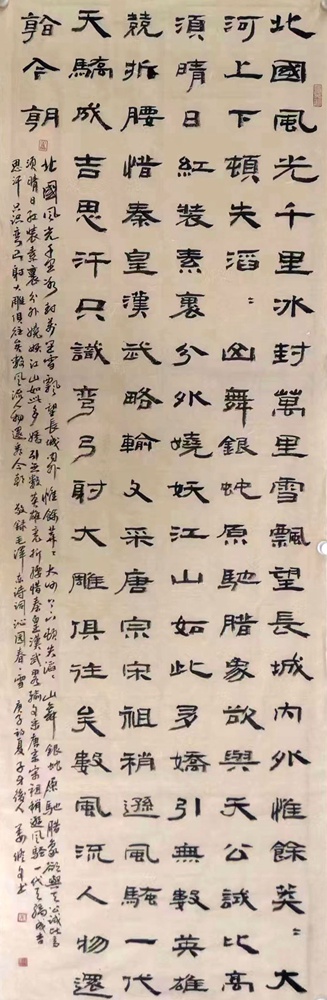 北國風光千里冰封萬里雪飄望長城內外惟餘莽〻大
河上下頓失滔〻山舞銀蛇原馳腊象欲與天公試比高
須晴日紅裝素裹分外嬈妖江山如此多嬌引無數英雄
競折腰惜秦皇漢武略輸文采唐宗宋祖稍遜風騷一代
天驕成吉思汗只識彎弓射大雕俱往矣數風流人物還
看今朝
北國風光千里冰封萬里雪飄望長城內外惟餘莽〻大河上下頓失滔〻山舞銀蛇原馳腊象欲與天公試比高
須晴日紅裝素裹分外嬈妖江山如此多嬌引無數英雄競折腰惜秦皇漢武略輸文采唐宗宋祖稍遜風騷一代天驕成吉
思汗只識彎弓射大雕俱往矣數風流人物還看今朝 敬錄毛澤東詩詞沁園春雪 庚子初夏子牙後人姜